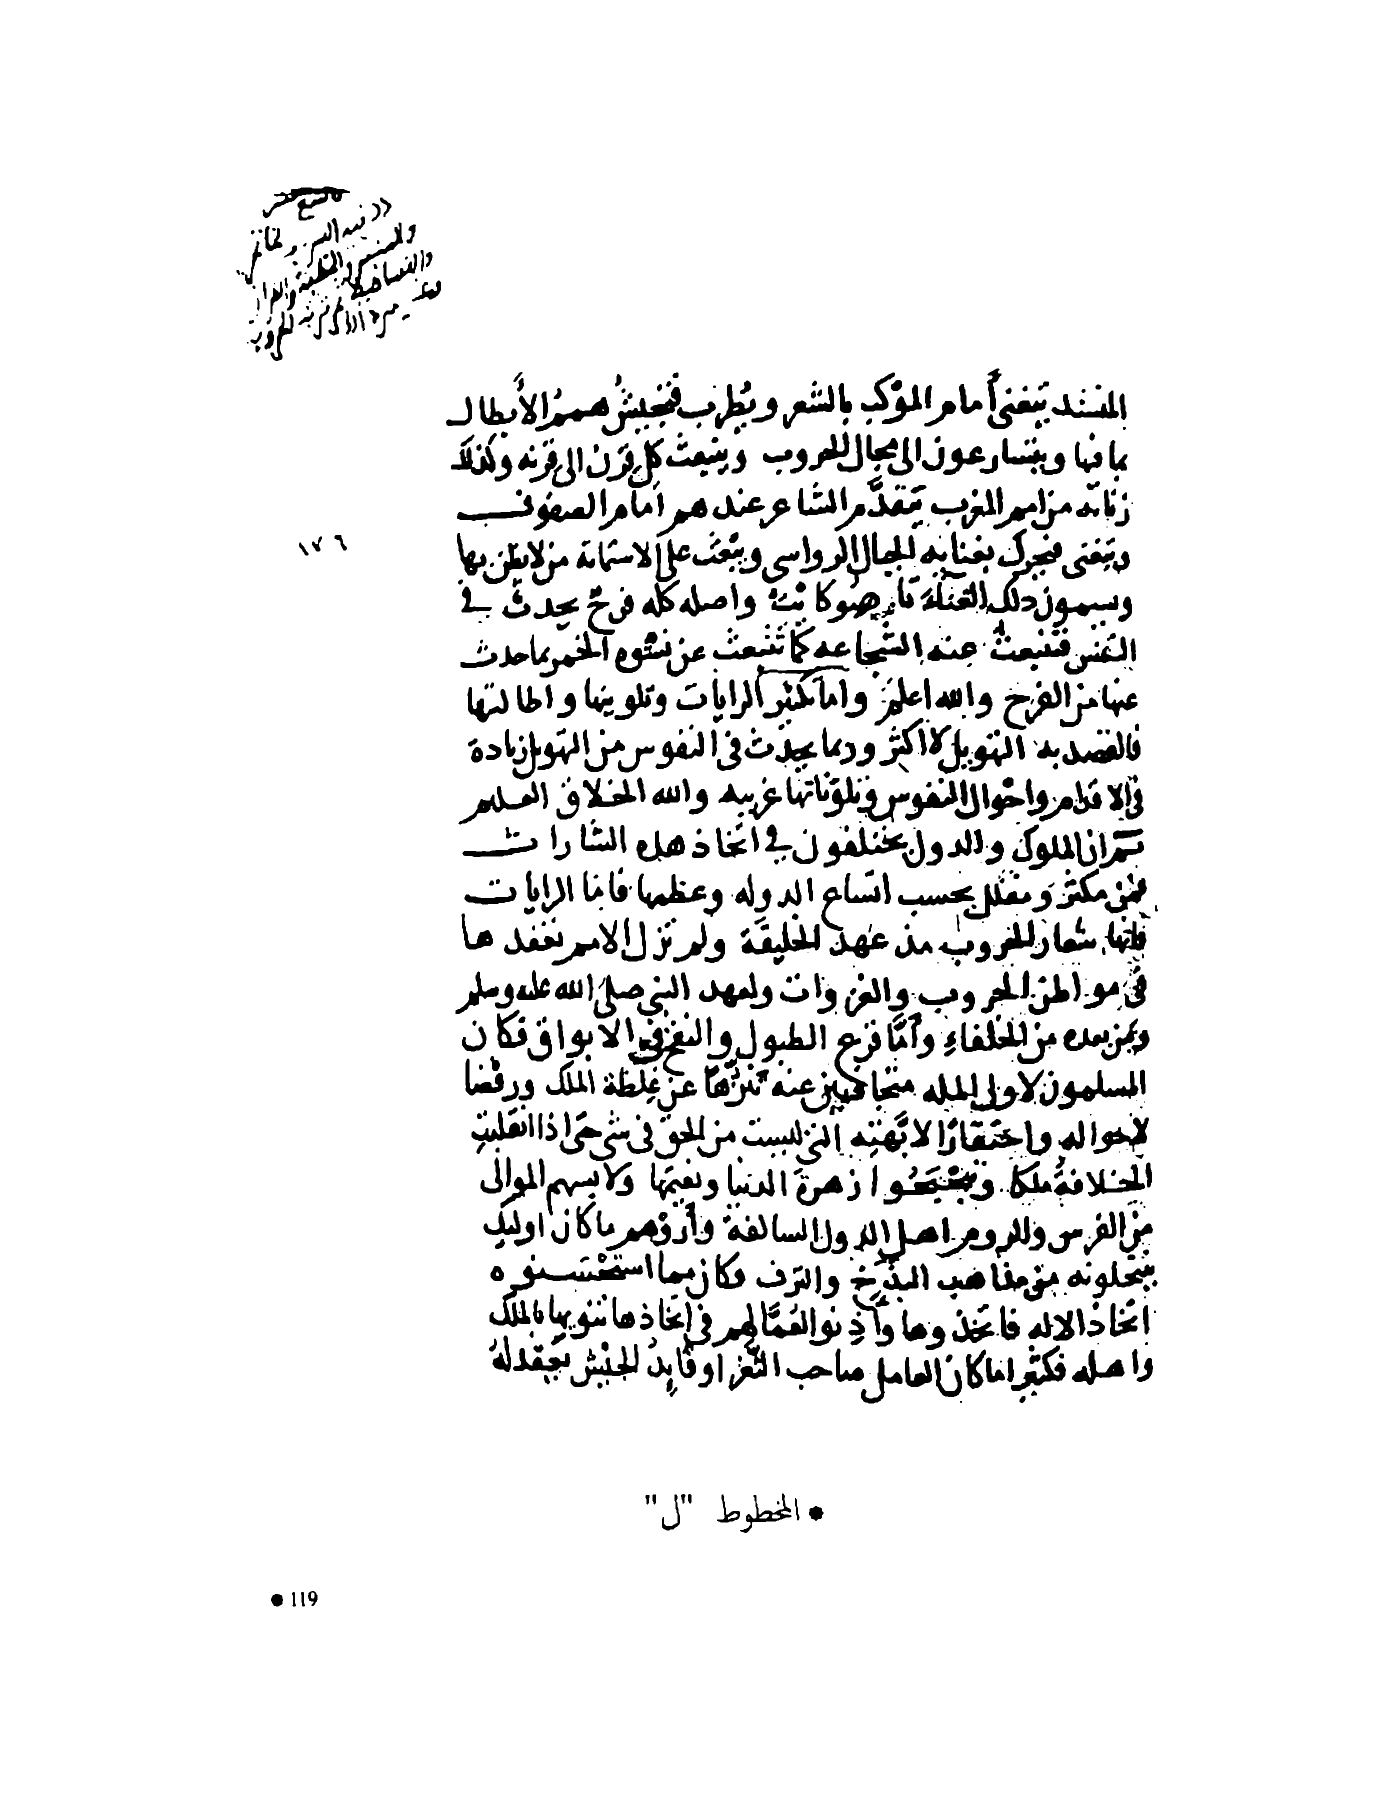 المنشد يتغنى أمام الموكب بالشعر ويُطرب فتجيش همم الأبطال
بما فيها ويتسارعون الى مجال الحروب وينبعث كل قرن الى قرنه وكذلك
زناته من امم المغرب يتقدَّم الشاعر عندهم أمام الصفوف
ويتغنى فيحرك بغنايه الجبال الرواسى ويبعث على الاستماتة من لا يظن بها
ويسمون ذلك الغناء تاصُوكايت واصله كله فرحٌ يحدث في
النفس فتنبعث عنه الشجاعه كما تنبعث عن نشوه الخمر بما حدث
عنها من الفرح والله اعلم واما تكثير الرايات وتلوينها واطالتها
فالقصد به التهويل لا اكثر وربما يحدث فى النفوس من التهويل زيادة
فى الاقدام واحوال النفوس وتلوّناتها غريبه والله الخلاق العليم
ثم ان الملوك والدول يختلفون في اتخاذ هذه الشارات
فمن مكثر ومقلل بحسب اتساع الدوله وعظمها فاما الرايات
فانها شعار الحروب منذ عهد الخليقة ولم تزل الامم تعقدها
فى مواطن الحروب والغزوات ولعهد النبى صلى الله عليه وسلم
ومن بعده من الخلفاءِ وأمَّا قرع الطبول والنفخ فى الابواق فكان
المسلمون لاول المله متجافين عنه تنزُّهًا عن غِلظة الملك ورفضا
لاحواله واحتقارًا لابَّهته التى ليست من الحق فى شى حتى اذا انقلبت
الخلافةُ ملكا وتبجّحوا زهرة الدنيا ونعيمها ولابسهم الموالى
من الفرس والروم اهل الدول السالفة وأرَوْهم ما كان اوليك
ينتحلونه من مذاهب البذخ والترف فكان مما استحسنوه
اتخاذ الاله فاتخذوها وأذنوا لعُمَّالهم فى اتخاذها تنويها بالملك
واهله فكثيرا ما كان العامل صاحب الثغر او قايدُ الجيش يعقد لهُ
١٧٦
• المخطوط "ل"
• 119